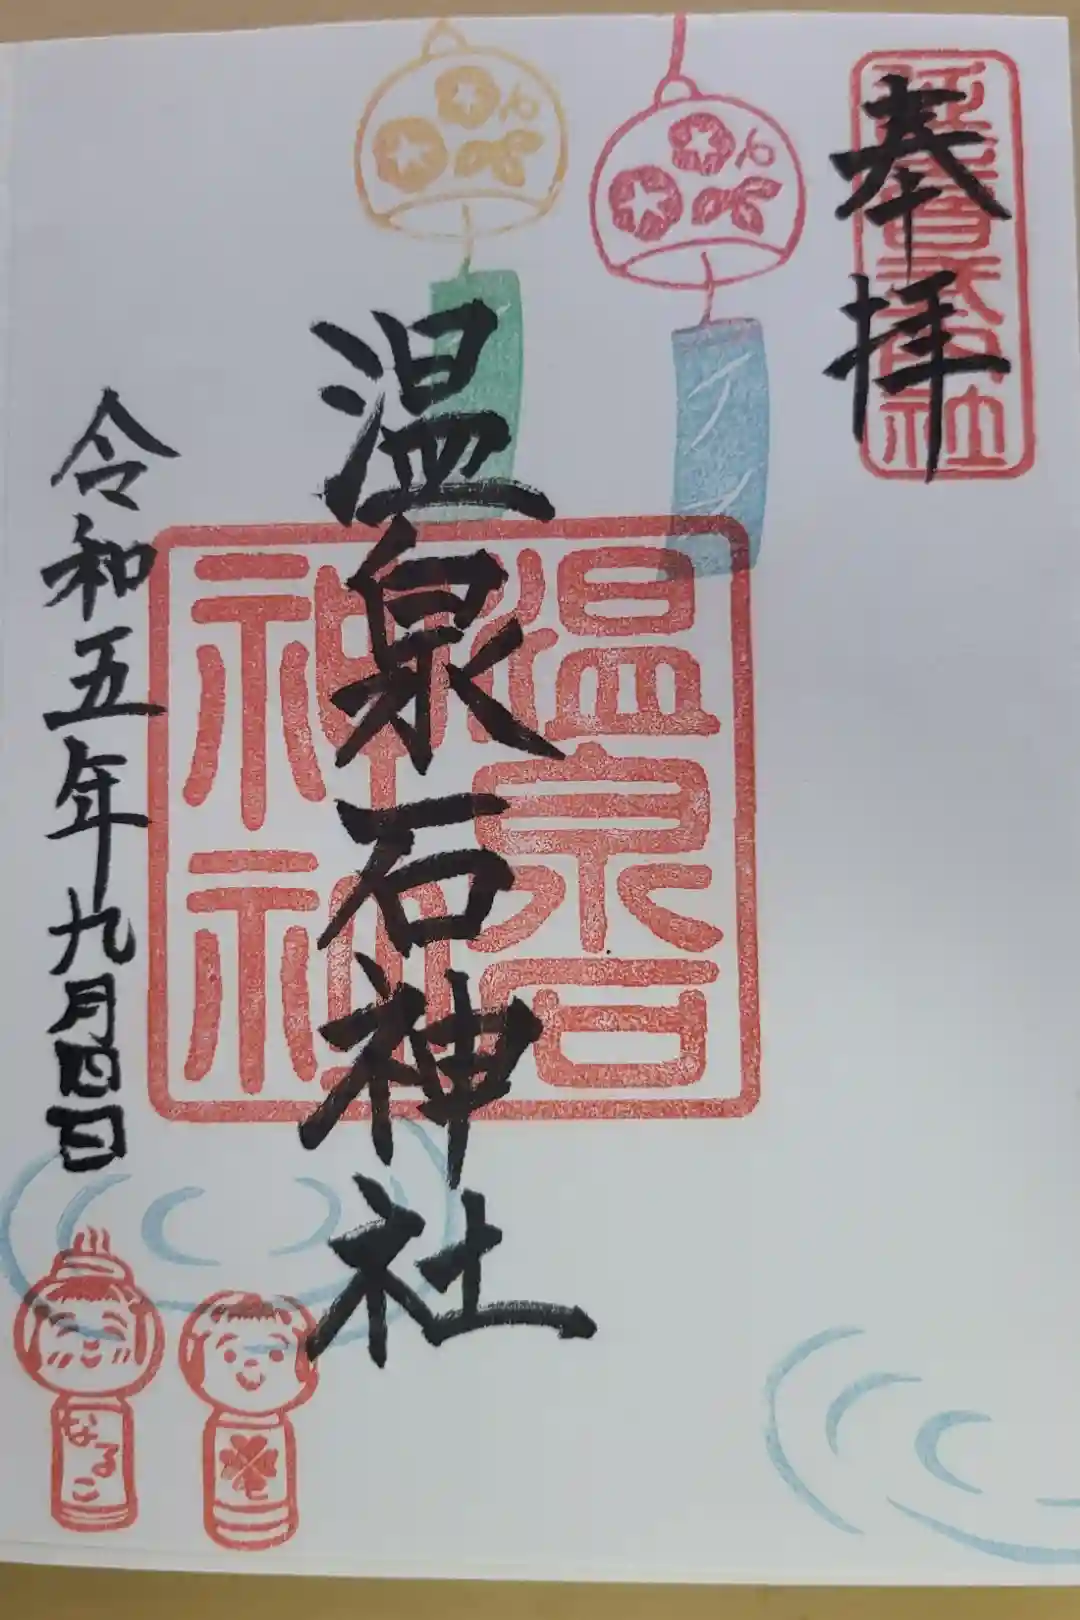 奉拝
温泉石神社
温泉石
神社
令和五年九月四日
なるこ